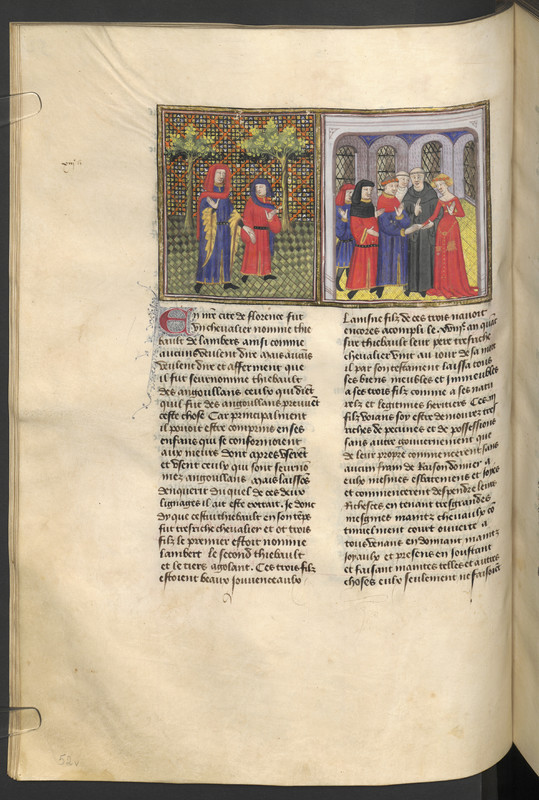 En nre cite de florence fut
un chevalier nomme thie
bault de lambers ainsi comme
aucuns veulent dire Mais aucuns
veulent dire et afferment que
il fut seurnomme thiebault
des angoullans ceulx qui dient
quil fut des angoullans preuvent
ceste chose Car principalment
il pouoit estre comprins en ses
enfans qui se conformoient
aux meurs dont apres userent
et usent ceulx qui sont seurno
mez angoullans Mais laissons
denquerir du quel de ces deux
lignages il ait este extrait. Je donc
dy que cestui thiebault en son teps
fut tresriche chevalier et ot trois
filz le premier estoit nomme
lambert le second thiebault
et le tiers agolant. Ces trois filz
estoient beaux jouvenceaulx
Laisne filz de ces trois navoit
encores acompli le an quat
sire thiebault leur pere tresriche
chevalier vint au jour de sa mort
il par son testament laissa tous
ses biens meubles et immeubles
a ses trois filz comme a ses natu
relz et legitimes heritiers Ces
filz voians soy estre demourez tres
riches de pecunes et de possessions
sans autre gouvernement que
de leur propre commencerent sans
aucun frain de Raison donner a
eulx mesmes esbatemens et joyes
et commencerent despendre leurs
Richesces en tenant tresgrandes
mesgnies maintz chevaulx co
tinuelment court ouverte a
tous venans en donnant maintz
joyaulx et presens en joustant
et faisant maintes telles et autres
choses eulx seulement ne faisoiet
52v